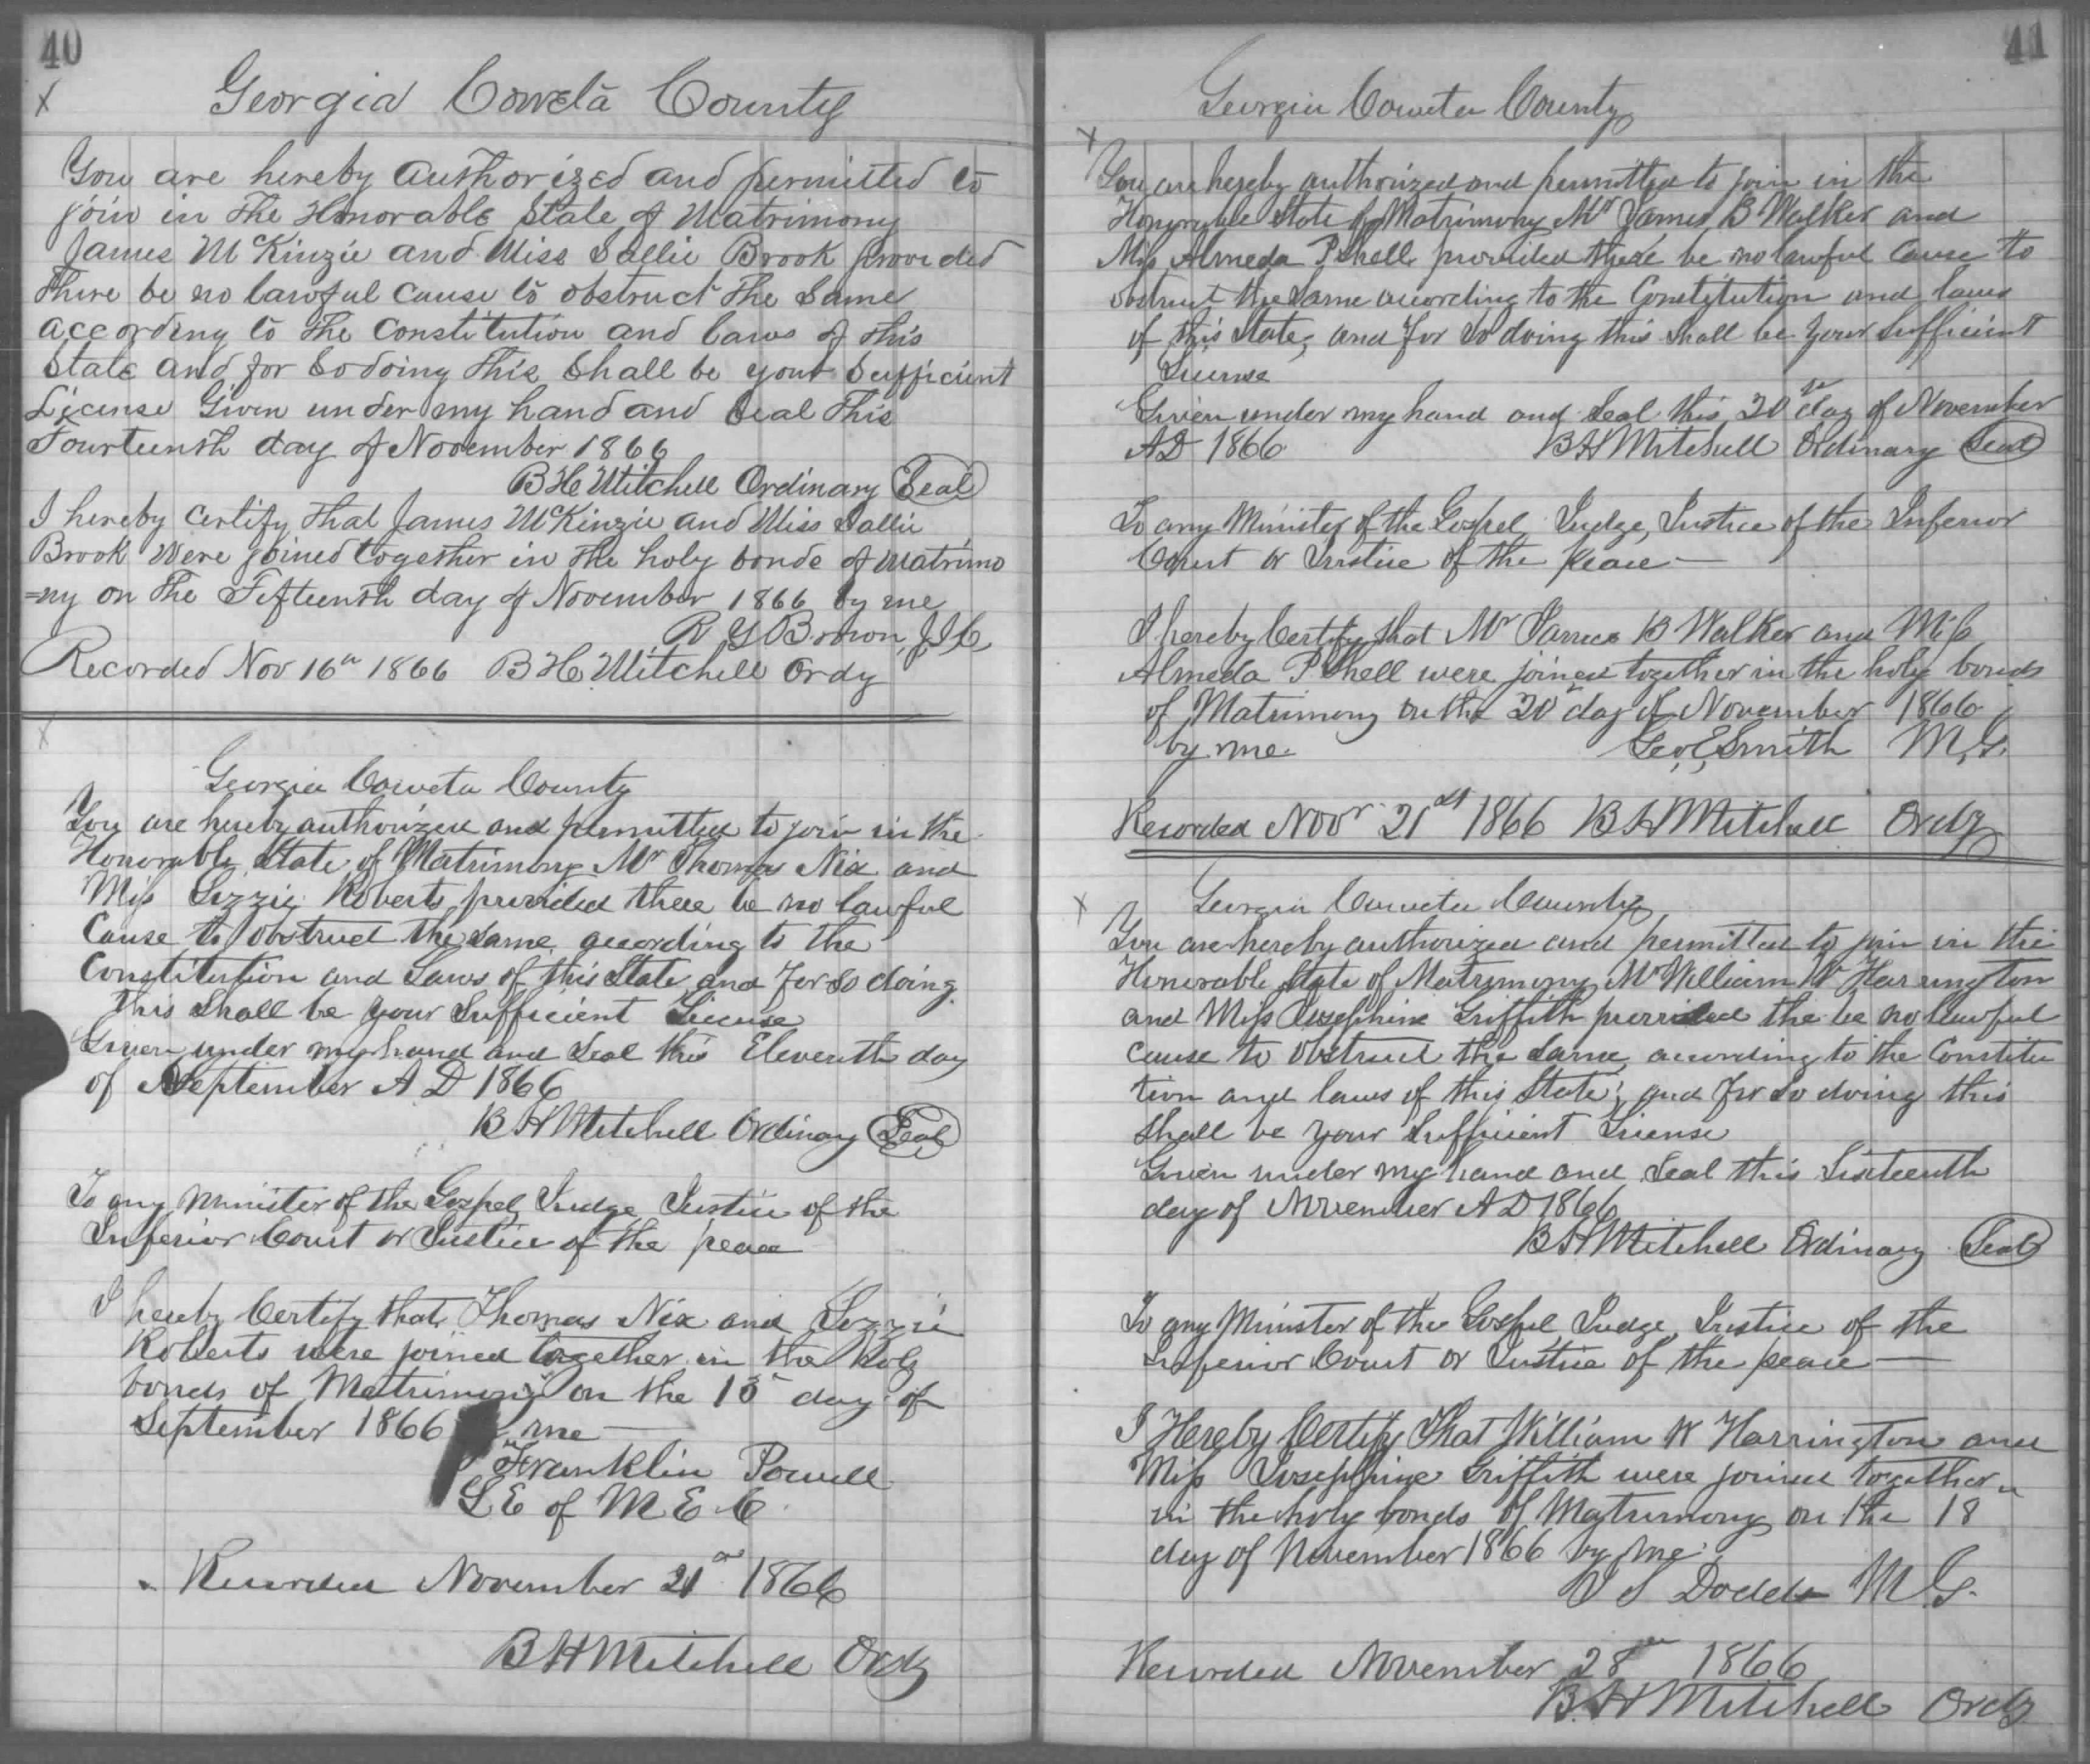 40
X
Georgia Coweta County
You are hereby authorized and permitted to
join in the Honorable State of Matrimony
James McKinzie and Miss Sallie Brook provided
there be no lawful cause to obstruct the same
according to the Constitution and laws of this
State and for so doing this shall be your sufficient
License Given under my hand and seal this
Fourteenth day of November 1866
B H Mitchell Ordinary Seal
I hereby certify that James McKinzie and Miss Sallie
Brook were joined together in the holy bonds of matrimo
=ny on the Fifteenth day of November 1866 by me
R Y Brown, J I C
Recorded Nov 16th 1866 B H Mitchell Ordy
X
Georgia Coweta County
You are hereby authorized and permitted to join in the
Honorable State of Matrimony Mr Thomas Nix and
Miss Lizzie Roberts provided there be no lawful
Cause to obstruct the same according to the
Constitution and Laws of this State and for so doing
this shall be your sufficient License
Given under my hand and seal this Eleventh day
of September A D 1866
B H Mitchell Ordinary Seal
To any Minister of the Gospel, Judge, Justice of the
Inferior Court or Justice of the peace
I hereby Certify that Thomas Nix and Lizzie
Roberts were joined together in the holy
bonds of Matrimony on the 13th day of
September 1866 me
Franklin Powell
L E of M E C
Recorded November 21st 1866
B H Mitchell Ordy
41
Georgia Coweta County
X
You are hereby authorized and permitted to join in the
Honorable State of Matrimony Mr James B Walker and
Miss Almeda P Shell provided there be no lawful cause to
obstruct the same according to the Constitution and laws
of this State, and for so doing this shall be your sufficient
License
Given under my hand and seal this 20th day of November
AD 1866 B H Mitchell Ordinary Seal
To any Minister of the Gospel, Judge, Justice of the Inferior
Court or Justice of the peace —
I hereby Certify that Mr James B Walker and Miss
Almeda P Shell were joined together in the holy bonds
of Matrimony on the 20th day of November 1866
by me Geo E Smith M.G.
Recorded Novr 21st 1866 B H Mitchell Ordy
X
Georgia Coweta County
You are hereby authorized and permitted to join in the
Honorable State of Matrimony Mr William W Harrington
and Miss Josephine Griffith provided the be no lawful
cause to obstruct the same according to the Constitu
tion and laws of this State, and for so doing this
shall be your sufficient License
Given under my hand and seal this Sixteenth
day of November A D 1866
B H Mitchell Ordinary Seal
To any Minister of the Gospel, Judge, Justice of the
Inferior Court or Justice of the peace —
I Hereby Certify That William W Harrington and
Miss Josephine Griffith were joined together
in the holy bonds of Matrimony on the 18
day of November 1866 by me
J S Dodds M.G.
Recorded November 28th 1866
B. H Mitchell Ordy